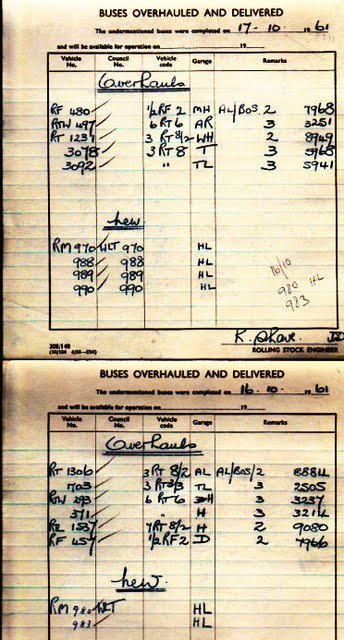 BUSES OVERHAULED AND DELIVERED
The undermentioned buses were completed on 17-10- 1961
and will be available for operation on 19
Vehicle No. Council No. Vehicle code Garage Remarks
Overhauls
RF 480 1/2RF 2 MH AL/BOS 2 7968
RTW 497 6 RT6 AR 3 3251
RT 1237 3 RT8/2 WH 2 8949
3078 3 RT8 T 3 5968
3092 " TL 3 5941
New.
RM 970 WLT 970 HL
988 988 HL
989 989 HL
990 990 HL
16/10
980 HL
983
K. Shave.
300/140 ROLLING STOCK ENGINEER
BUSES OVERHAULED AND DELIVERED
The undermentioned buses were completed on 16-10- 1961
and will be available for operation on 19
Vehicle No. Council No. Vehicle code Garage Remarks
Overhauls
RT 1306 3 RT 8/2 AL AL/BOS/2 8884
1703 3 RT3/3 TL 3 2505
RTW 293 6 RT6 H 3 3237
371 " H 3 3214
RT 1537 7RT8/2 H 2 9080
RF 457 1/2RF2 D 2 7966
New.
RM 980 WLT HL
983 HL